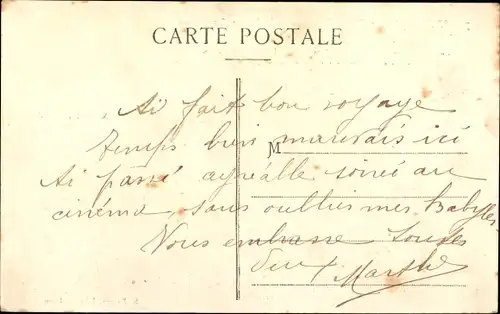 CARTE POSTALE
Ai fait bon voyage
temps bien mauvais ici
M
Ai passé agréable soirée au
cinéma sans oublier mes
Vous embrasse toutes
deux Marthe